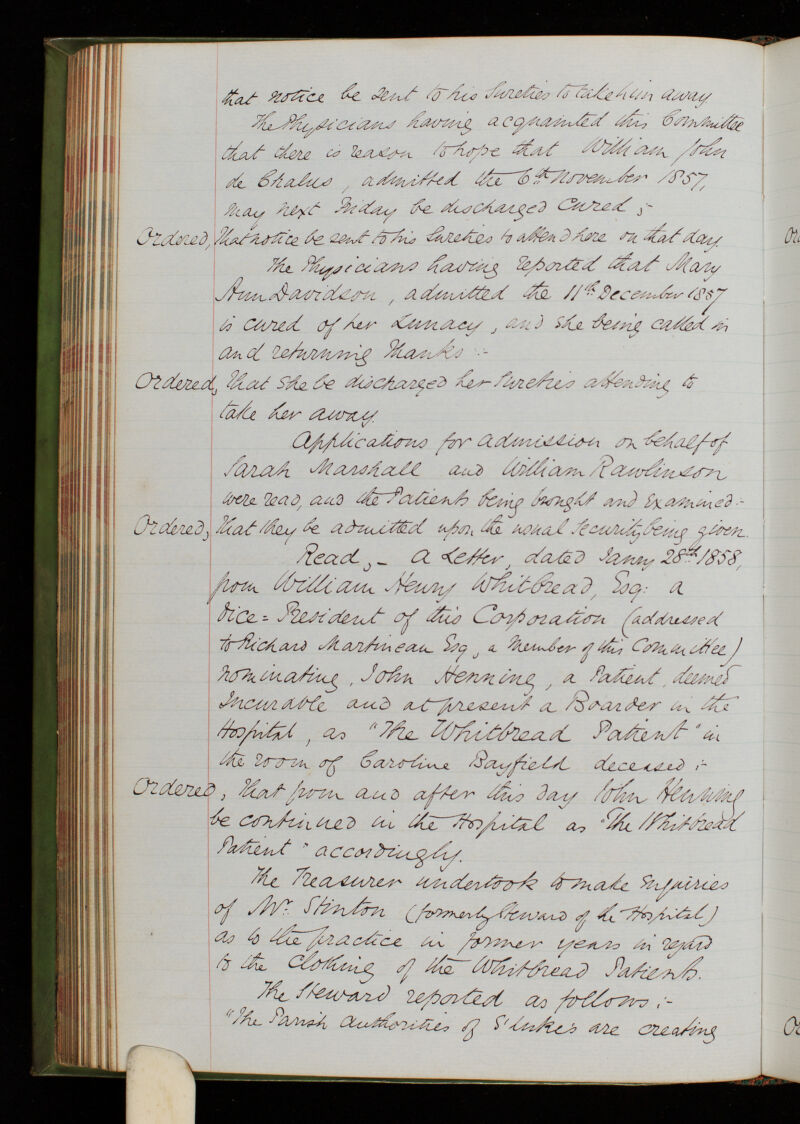 that notice be sent to his Sureties to take him away
The Physicians having acquainted this Committee
that there is reason to hope that William John
de Chalus, admitted the 6th November 1857,
may next Friday be discharged Cured ;-
Ordered, That notice be sent to his Sureties to attend here on that day.
The Physicians having reported that Mary
Ann Davidson, admitted the 11th December 1857
is cured of her Lunacy, and she being called in
and returning Thanks :-
Ordered, That she be discharged her Sureties attending to
take her away.
Applications for admission on behalf of
Sarah Marshall and William Rawlinson
were read, and the Patients being brought and examined :-
Ordered, That they be admitted upon the usual Security being given.
Read, - A Letter, dated Janry 28th 1858,
from William Henry Whitbread, Esq: a
Vice=President of this Corporation (addressed
to Richard Martineau Esq, a Member of this Committee)
nominating, John Henning, a Patient, deemed
Incurable and at present a Boarder in the
Hospital, as "The Whitbread Patient" in
the room of Caroline Bayfield deceased :-
Ordered, That from and after this day John Henning
be continued in the Hospital as "The Whitbread
Patient" accordingly.
The Treasurer undertook to make Enquiries
of Mr. Stinton (formerly Steward of the Hospital)
as to the practice in former years in regard
to the Clothing of the Whitbread Patients.
The Steward reported as follows :-
"The Parish Authorities of St Lukes are creating